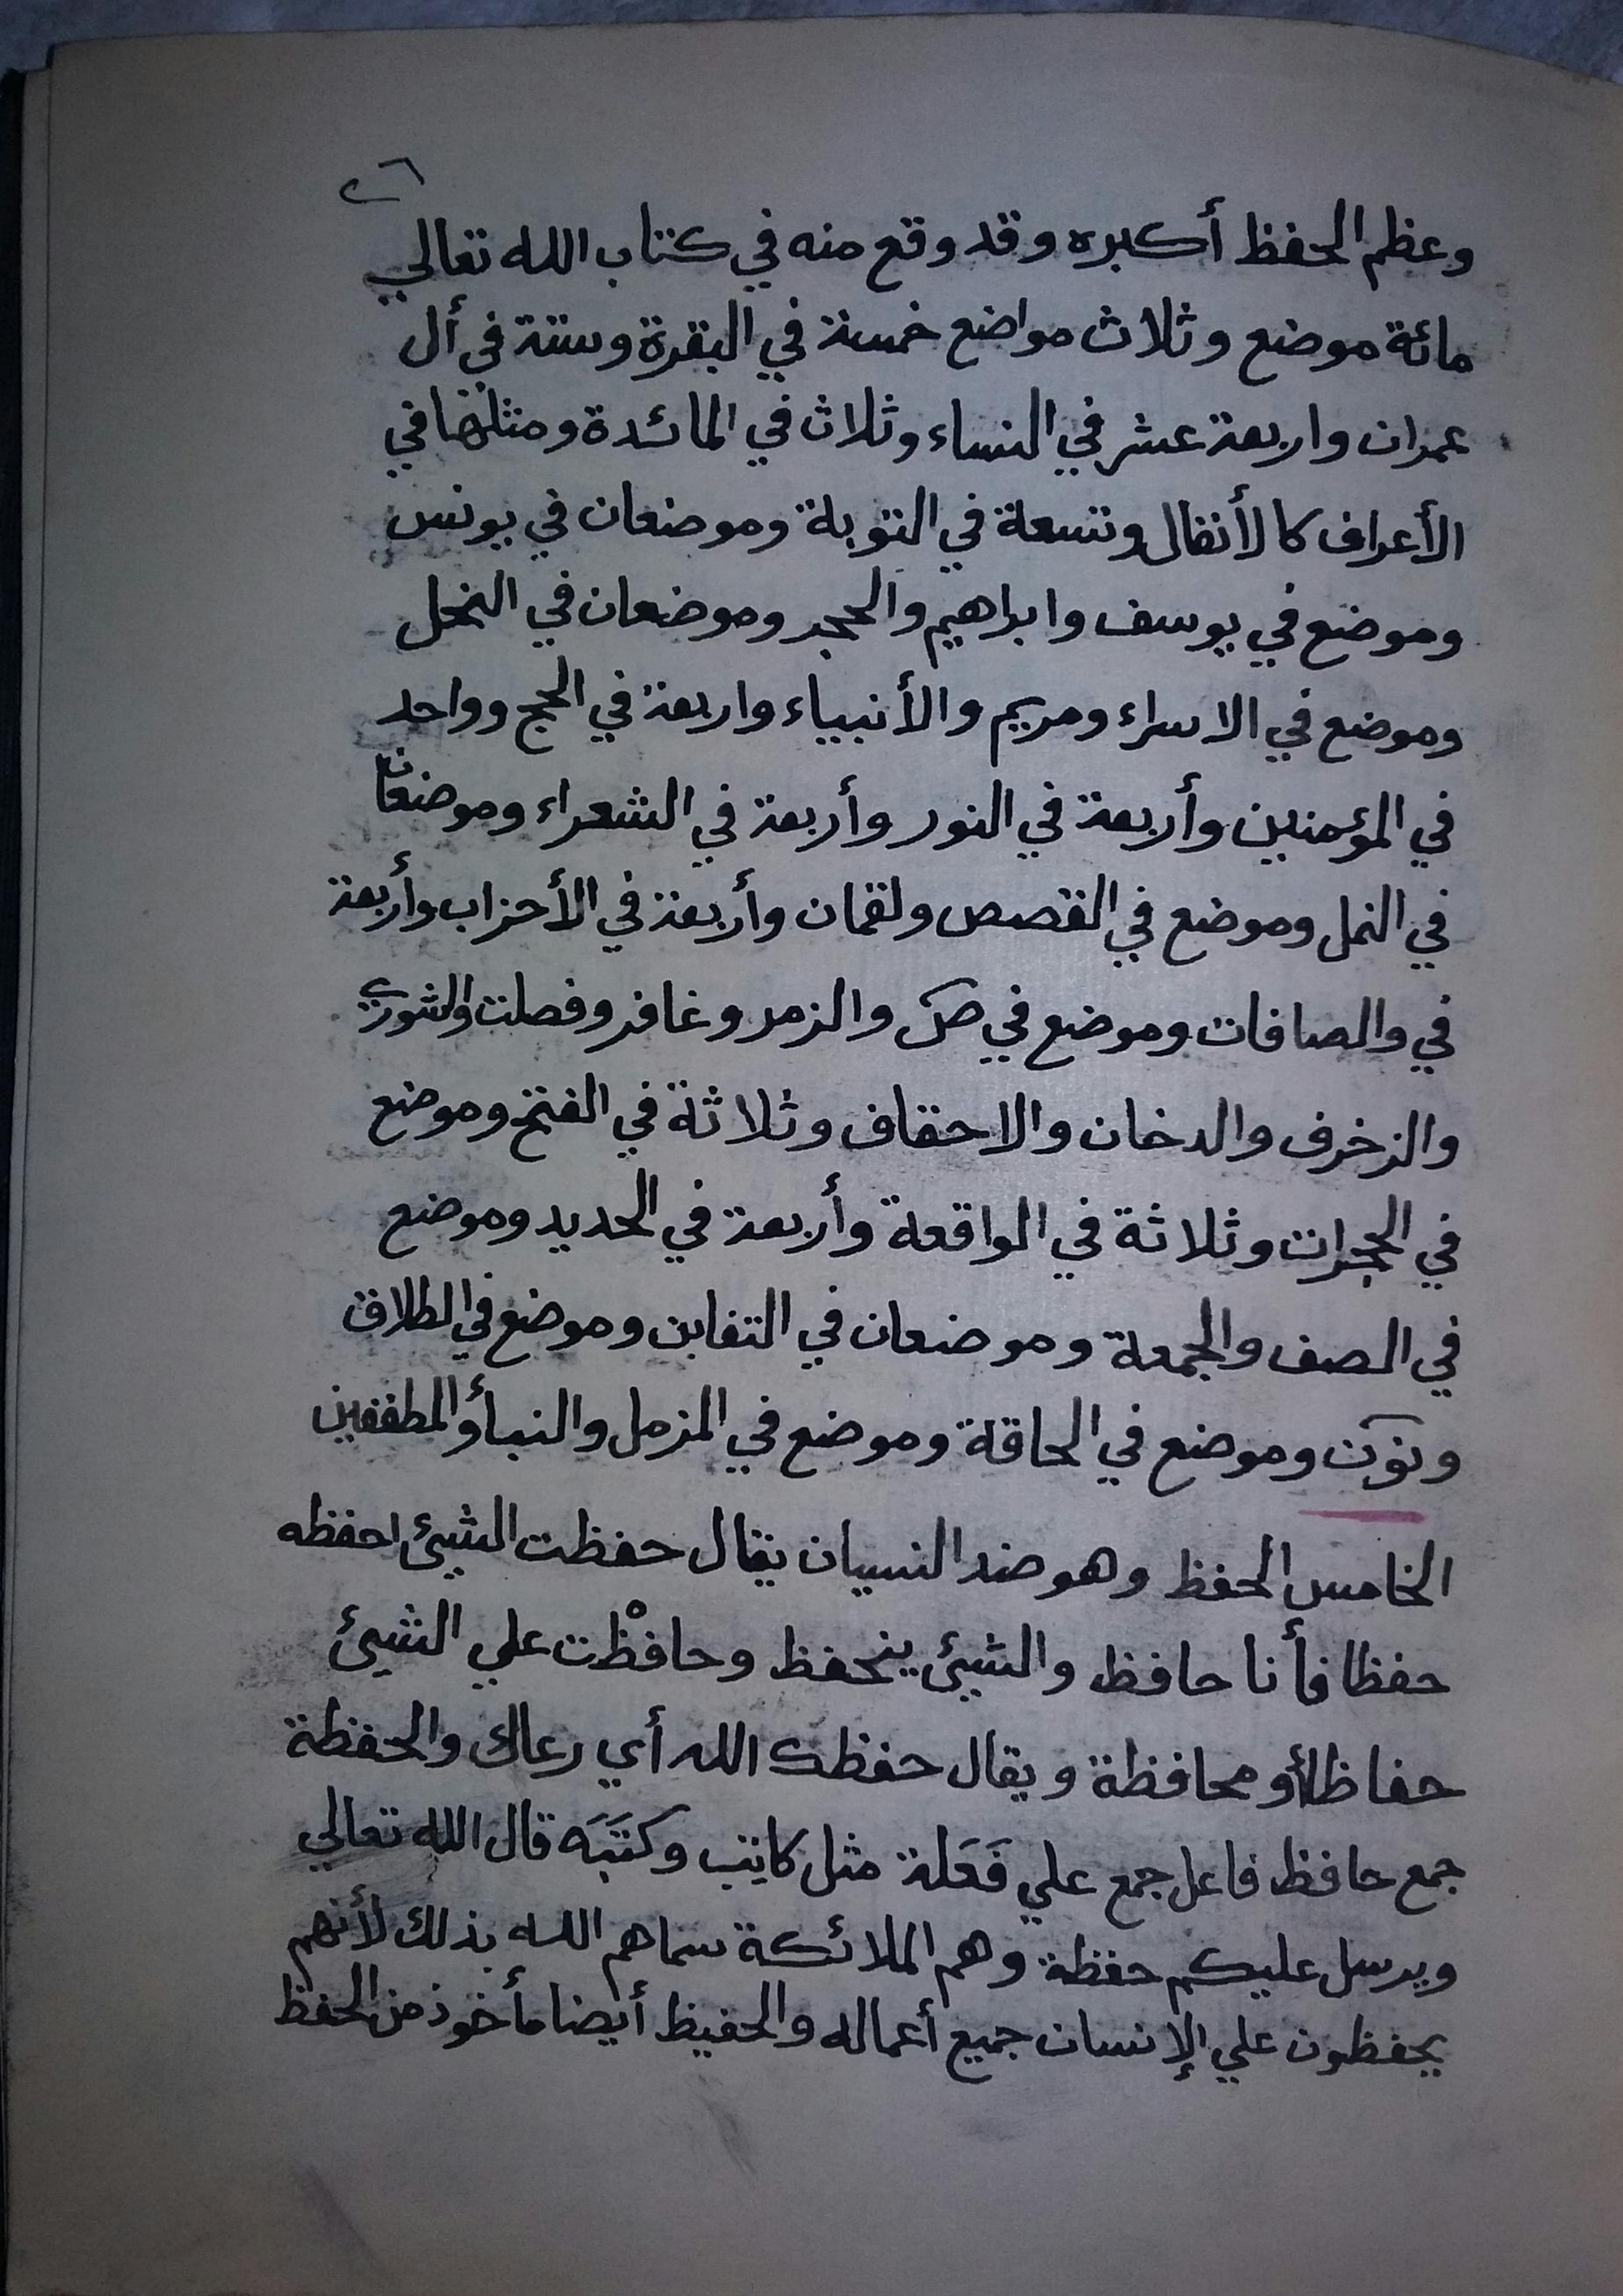 ٢٦
وعظم الحفظ أكبره وقد وقع منه في كتاب الله تعالي
مائة موضع وثلاث مواضع خمسة في البقرة وستة في أل
عمران واربعة عشر في النساء وثلاث في المائدة ومثلها في
الأعراف كالأنفال وتسعة في التوبة وموضعان في يونس
وموضع في يوسف وابراهيم والحجر وموضعان في النحل
وموضع في الاسراء ومريم والأنبياء واربعة في الحج وواحد
في المؤمنين وأربعة في النور وأربعة في الشعراء وموضعان
في النمل وموضع في القصص ولقمان وأربعة في الأحزاب وأربعة
في والصافات وموضع في ص والزمر وغافر وفصلت والشوري
والزخرف والدخان والاحقاف وثلاثة في الفتح وموضع
في الحجرات وثلاثة في الواقعة وأربعة في الحديد وموضع
في الصف والجمعة وموضعان في التغابن وموضع في الطلاق
ونون وموضع في الحاقة وموضع في المزمل والنبأ والمطففين
الخامس الحفظ وهو ضد النسيان يقال حفظت الشيئ احفظه
حفظا فأنا حافظ والشيئ ينحفظ وحافظْت علي الشيئ
حفاظا أو محافظة ويقال حفظك الله أي رعاك والحفظة
جمع حافظ فاعل جمع علي فَعَلة مثل كاتِب وكتَبَه قال الله تعالي
ويرسل عليكم حفظة وهم الملائكة سماهم الله بذلك لأنهم
يحفظون علي الإنسان جميع أعماله والحفيظ أيضا مأخوذ من الحفظ